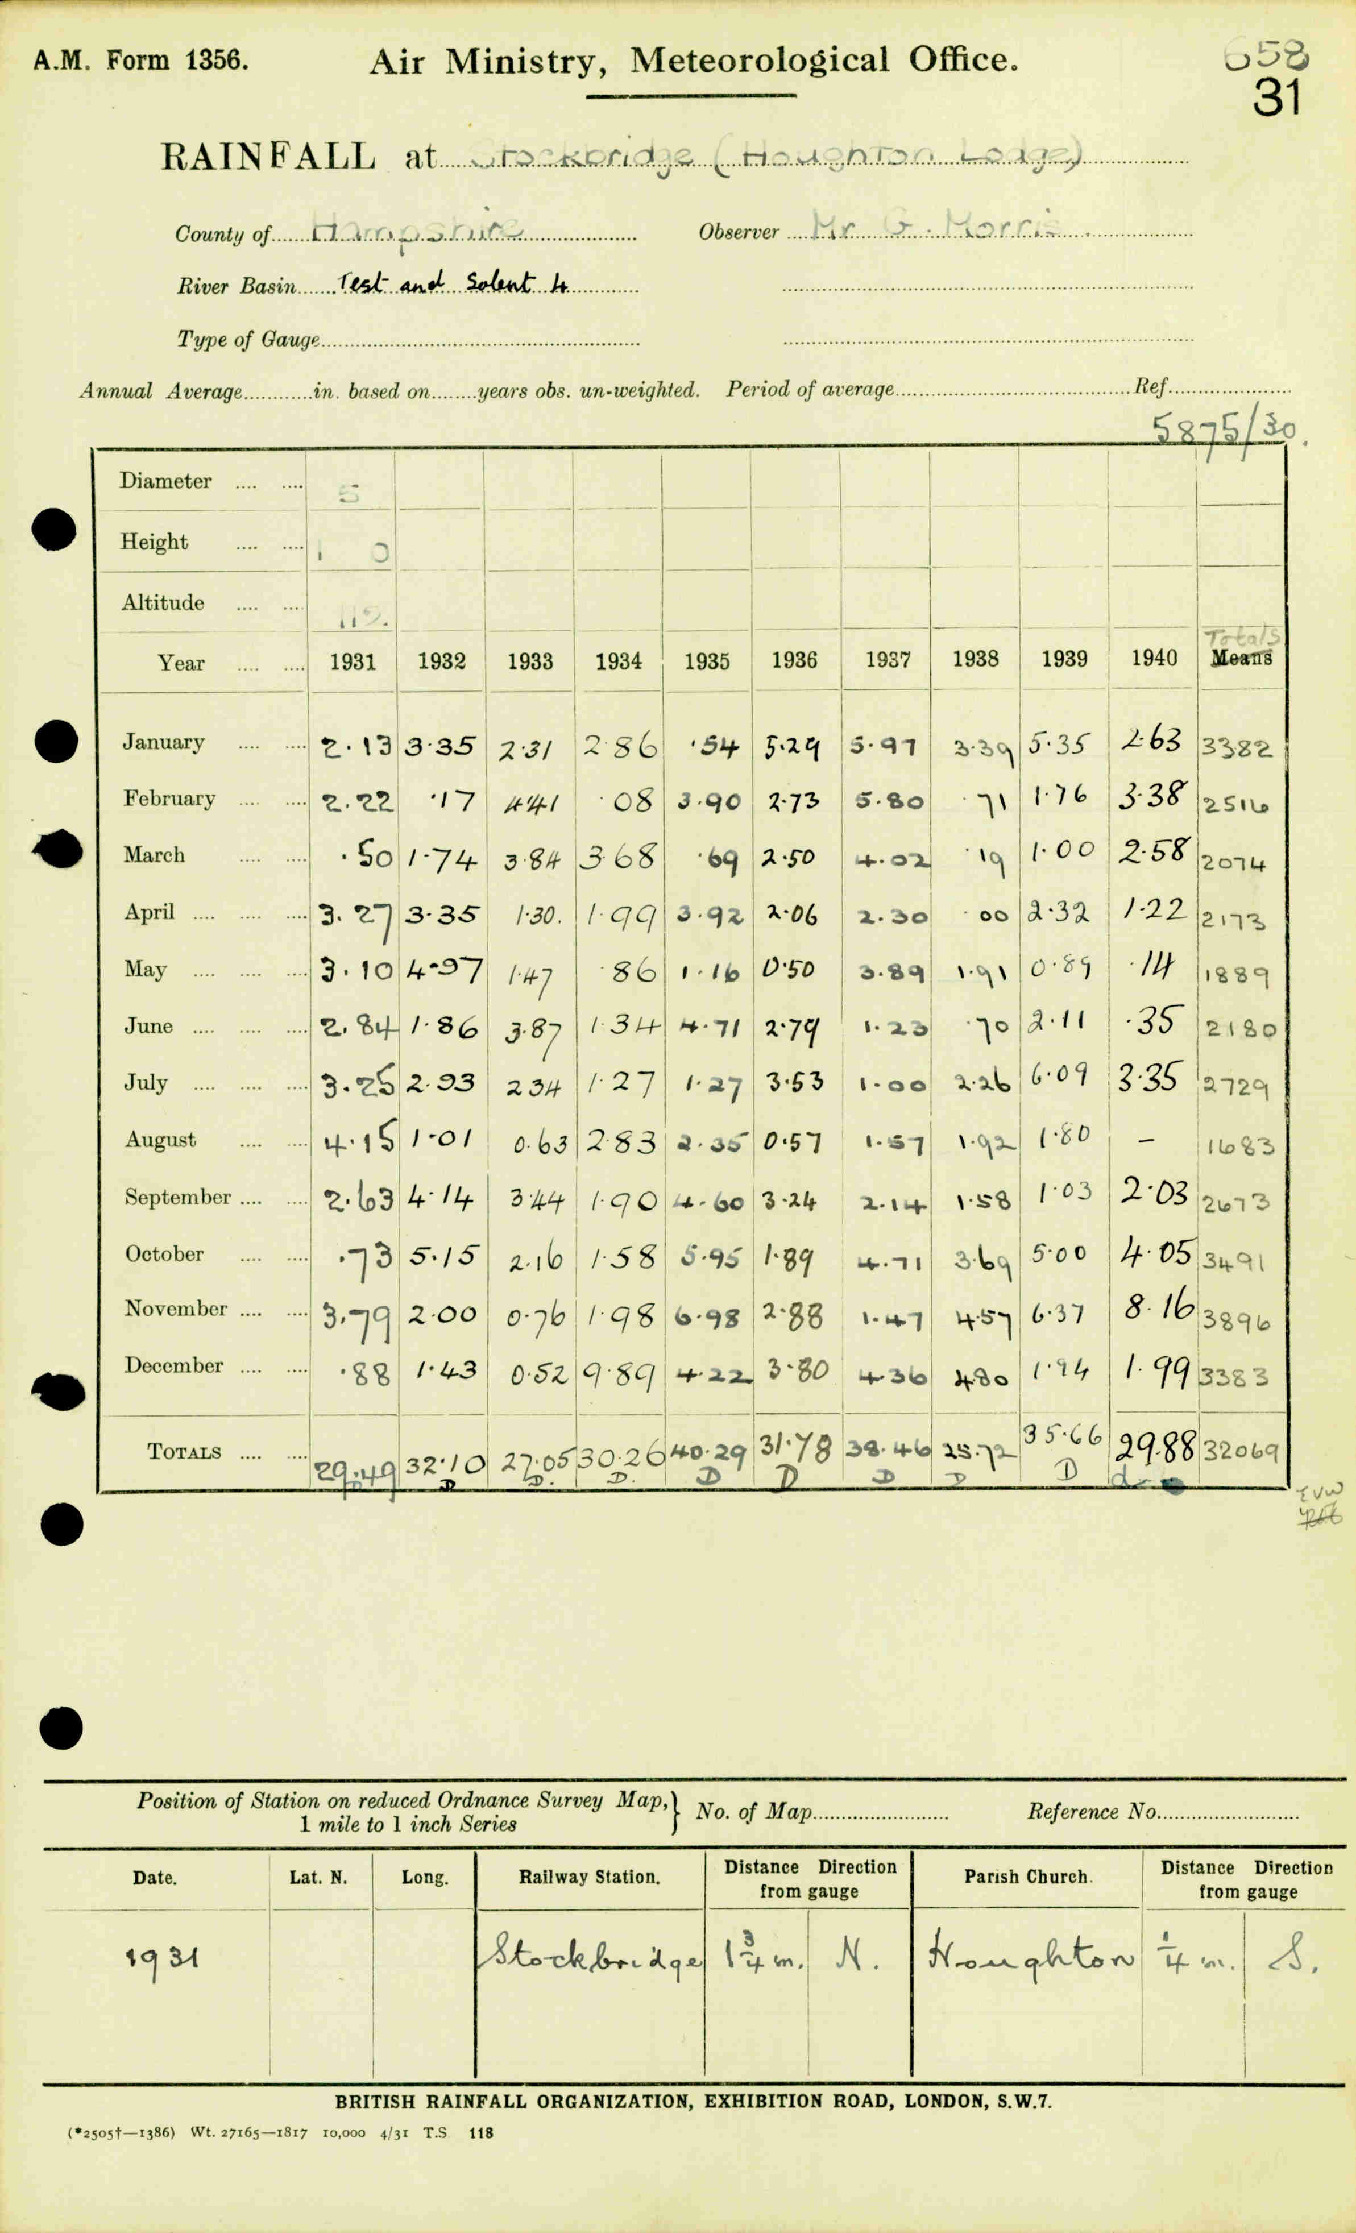 A.M. Form 1356. Air Ministry, Meteorological Office. 658
31
RAINFALL at Stockbridge (Houghton Lodge)
County of Hampshire Observer Mr G. Morris.
River Basin Test and Solent 4
Type of Gauge
Annual Average in. based on years obs. un-weighted. Period of average Ref.
5875/30.
Diameter 5
Height 1 0
Altitude 112.
Totals
Year 1931 1932 1933 1934 1935 1936 1937 1938 1939 1940 Means
January 2.13 3.35 2.31 2.86 .54 5.29 5.97 3.39 5.35 2.63 3382
February 2.22 .17 4.41 .08 3.90 2.73 5.80 .71 1.76 3.38 2516
March .50 1.74 3.84 3.68 .69 2.50 4.02 .19 1.00 2.58 2074
April 3.27 3.35 1.30. 1.99 3.92 2.06 2.30 .00 2.32 1.22 2173
May 3.10 4.97 1.47 .86 1.16 0.50 3.89 1.91 0.89 .14 1889
June 2.84 1.86 3.87 1.34 4.71 2.79 1.23 .70 2.11 .35 2180
July 3.25 2.93 2.34 1.27 1.27 3.53 1.00 2.26 6.09 3.35 2729
August 4.15 1.01 0.63 2.83 2.35 0.57 1.57 1.92 1.80 – 1683
September 2.63 4.14 3.44 1.90 4.60 3.24 2.14 1.58 1.03 2.03 2673
October .73 5.15 2.16 1.58 5.95 1.89 4.71 3.69 5.00 4.05 3491
November 3.79 2.00 0.76 1.98 6.98 2.88 1.47 4.57 6.37 8.16 3896
December .88 1.43 0.52 9.89 4.22 3.80 4.36 4.80 1.94 1.99 3383
TOTALS 29.49 32.10 27.05 30.26 40.29 31.78 38.46 25.72 35.66 29.88 32069
D D D. D. D D D D D
EVW
Position of Station on reduced Ordnance Survey Map,} No. of Map Reference No.
1 mile to 1 inch Series
Date. Lat. N. Long. Railway Station. Distance Direction from gauge Parish Church. Distance Direction from gauge
1931 Stockbridge 1 3/4 m. N. Houghton 1/4 m. S.
BRITISH RAINFALL ORGANIZATION, EXHIBITION ROAD, LONDON, S.W.7.
(*2505†—1386) Wt. 27165—1817 10,000 4/31 T.S 118